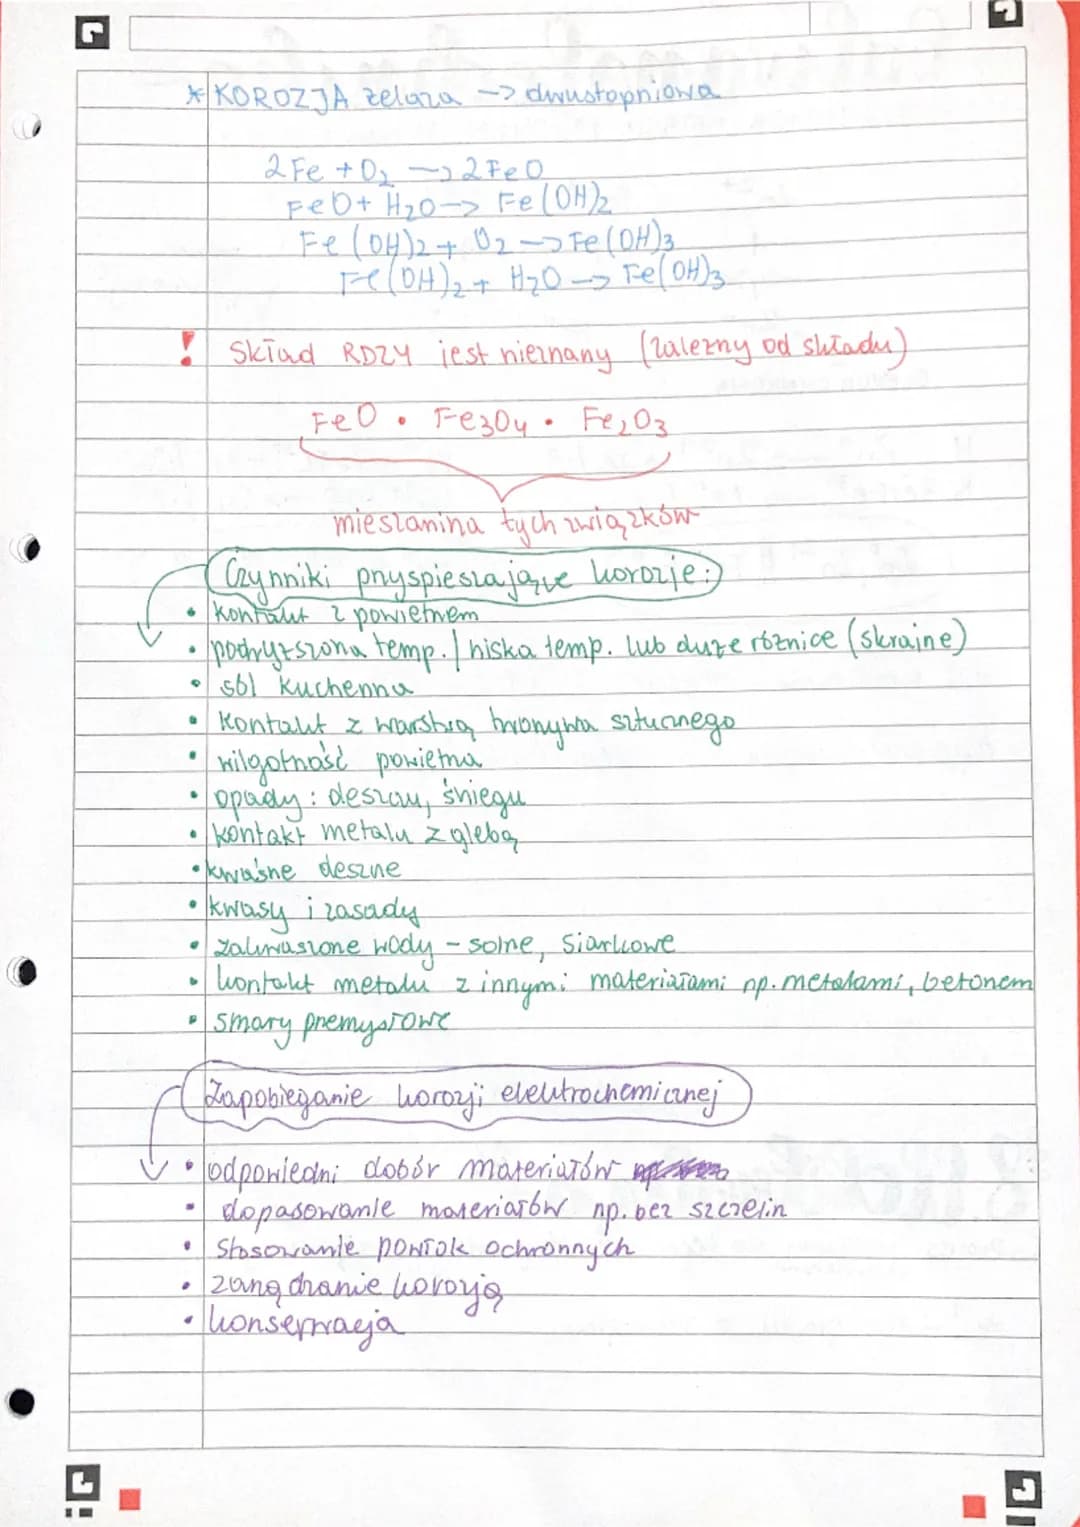 * KOROZJA żelaza -> dwustopniowa
2Fe + O₂ -> 2FeO
FeO + H₂O -> Fe(OH)₂
Fe(OH)₂ + O₂ -> Fe(OH)₃
Fe(OH)₂ + H₂O -> Fe(OH)₃
! Skład RDZY jest nieznany (zależny od składu)
FeO • Fe₃O₄ • Fe₂O₃
mieszanina tych związków
Czynniki przyspieszające korozję:
• kontakt z powietrzem
• podwyższona temp. / niska temp. lub duże różnice (skrajne)
• sól kuchenna
• kontakt z warstwą tworzywa sztucznego
• wilgotność powietrza
• opady: deszczu, śniegu
• kontakt metalu z glebą
• kwaśne deszcze
• kwasy i zasady
• zakwaszone wody - solne, siarkowe
• kontakt metalu z innymi materiałami np. metalami, betonem
• smary przemysłowe
Zapobieganie korozji elektrochemicznej
• odpowiedni dobór materiałów
• dopasowanie materiałów np. bez szczelin
• Stosowanie powłok ochronnych
• zarządzanie korozją
• konserwacja